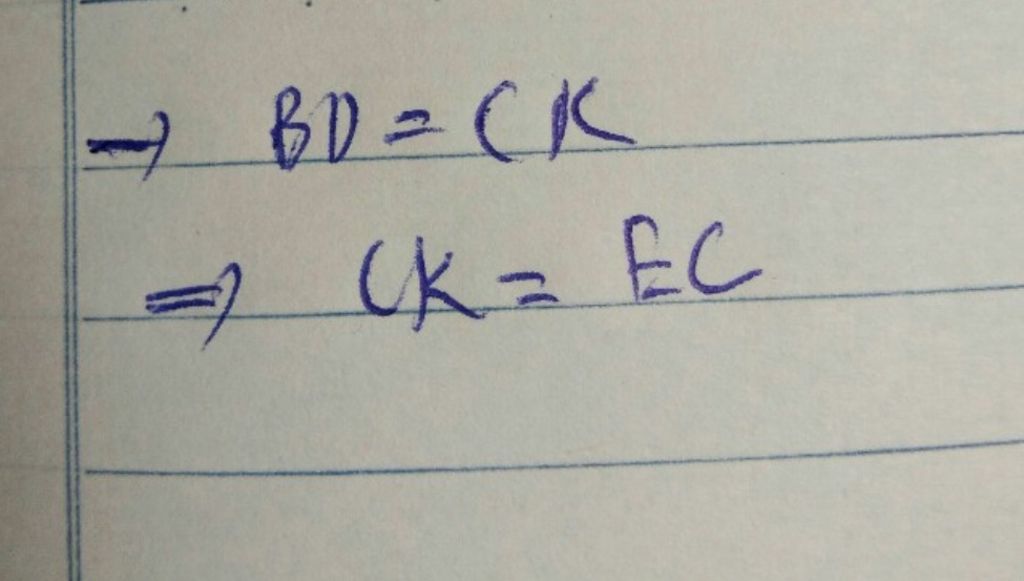 → BD = CK
⇒ CK = EC